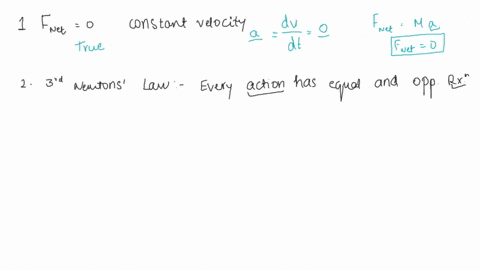 1 F_Net = 0 constant velocity a = dv/dt = 0 F_Net = Ma
True F_Net = 0
2. 3rd Newtons' Law :- Every action has equal and opp. Rxn